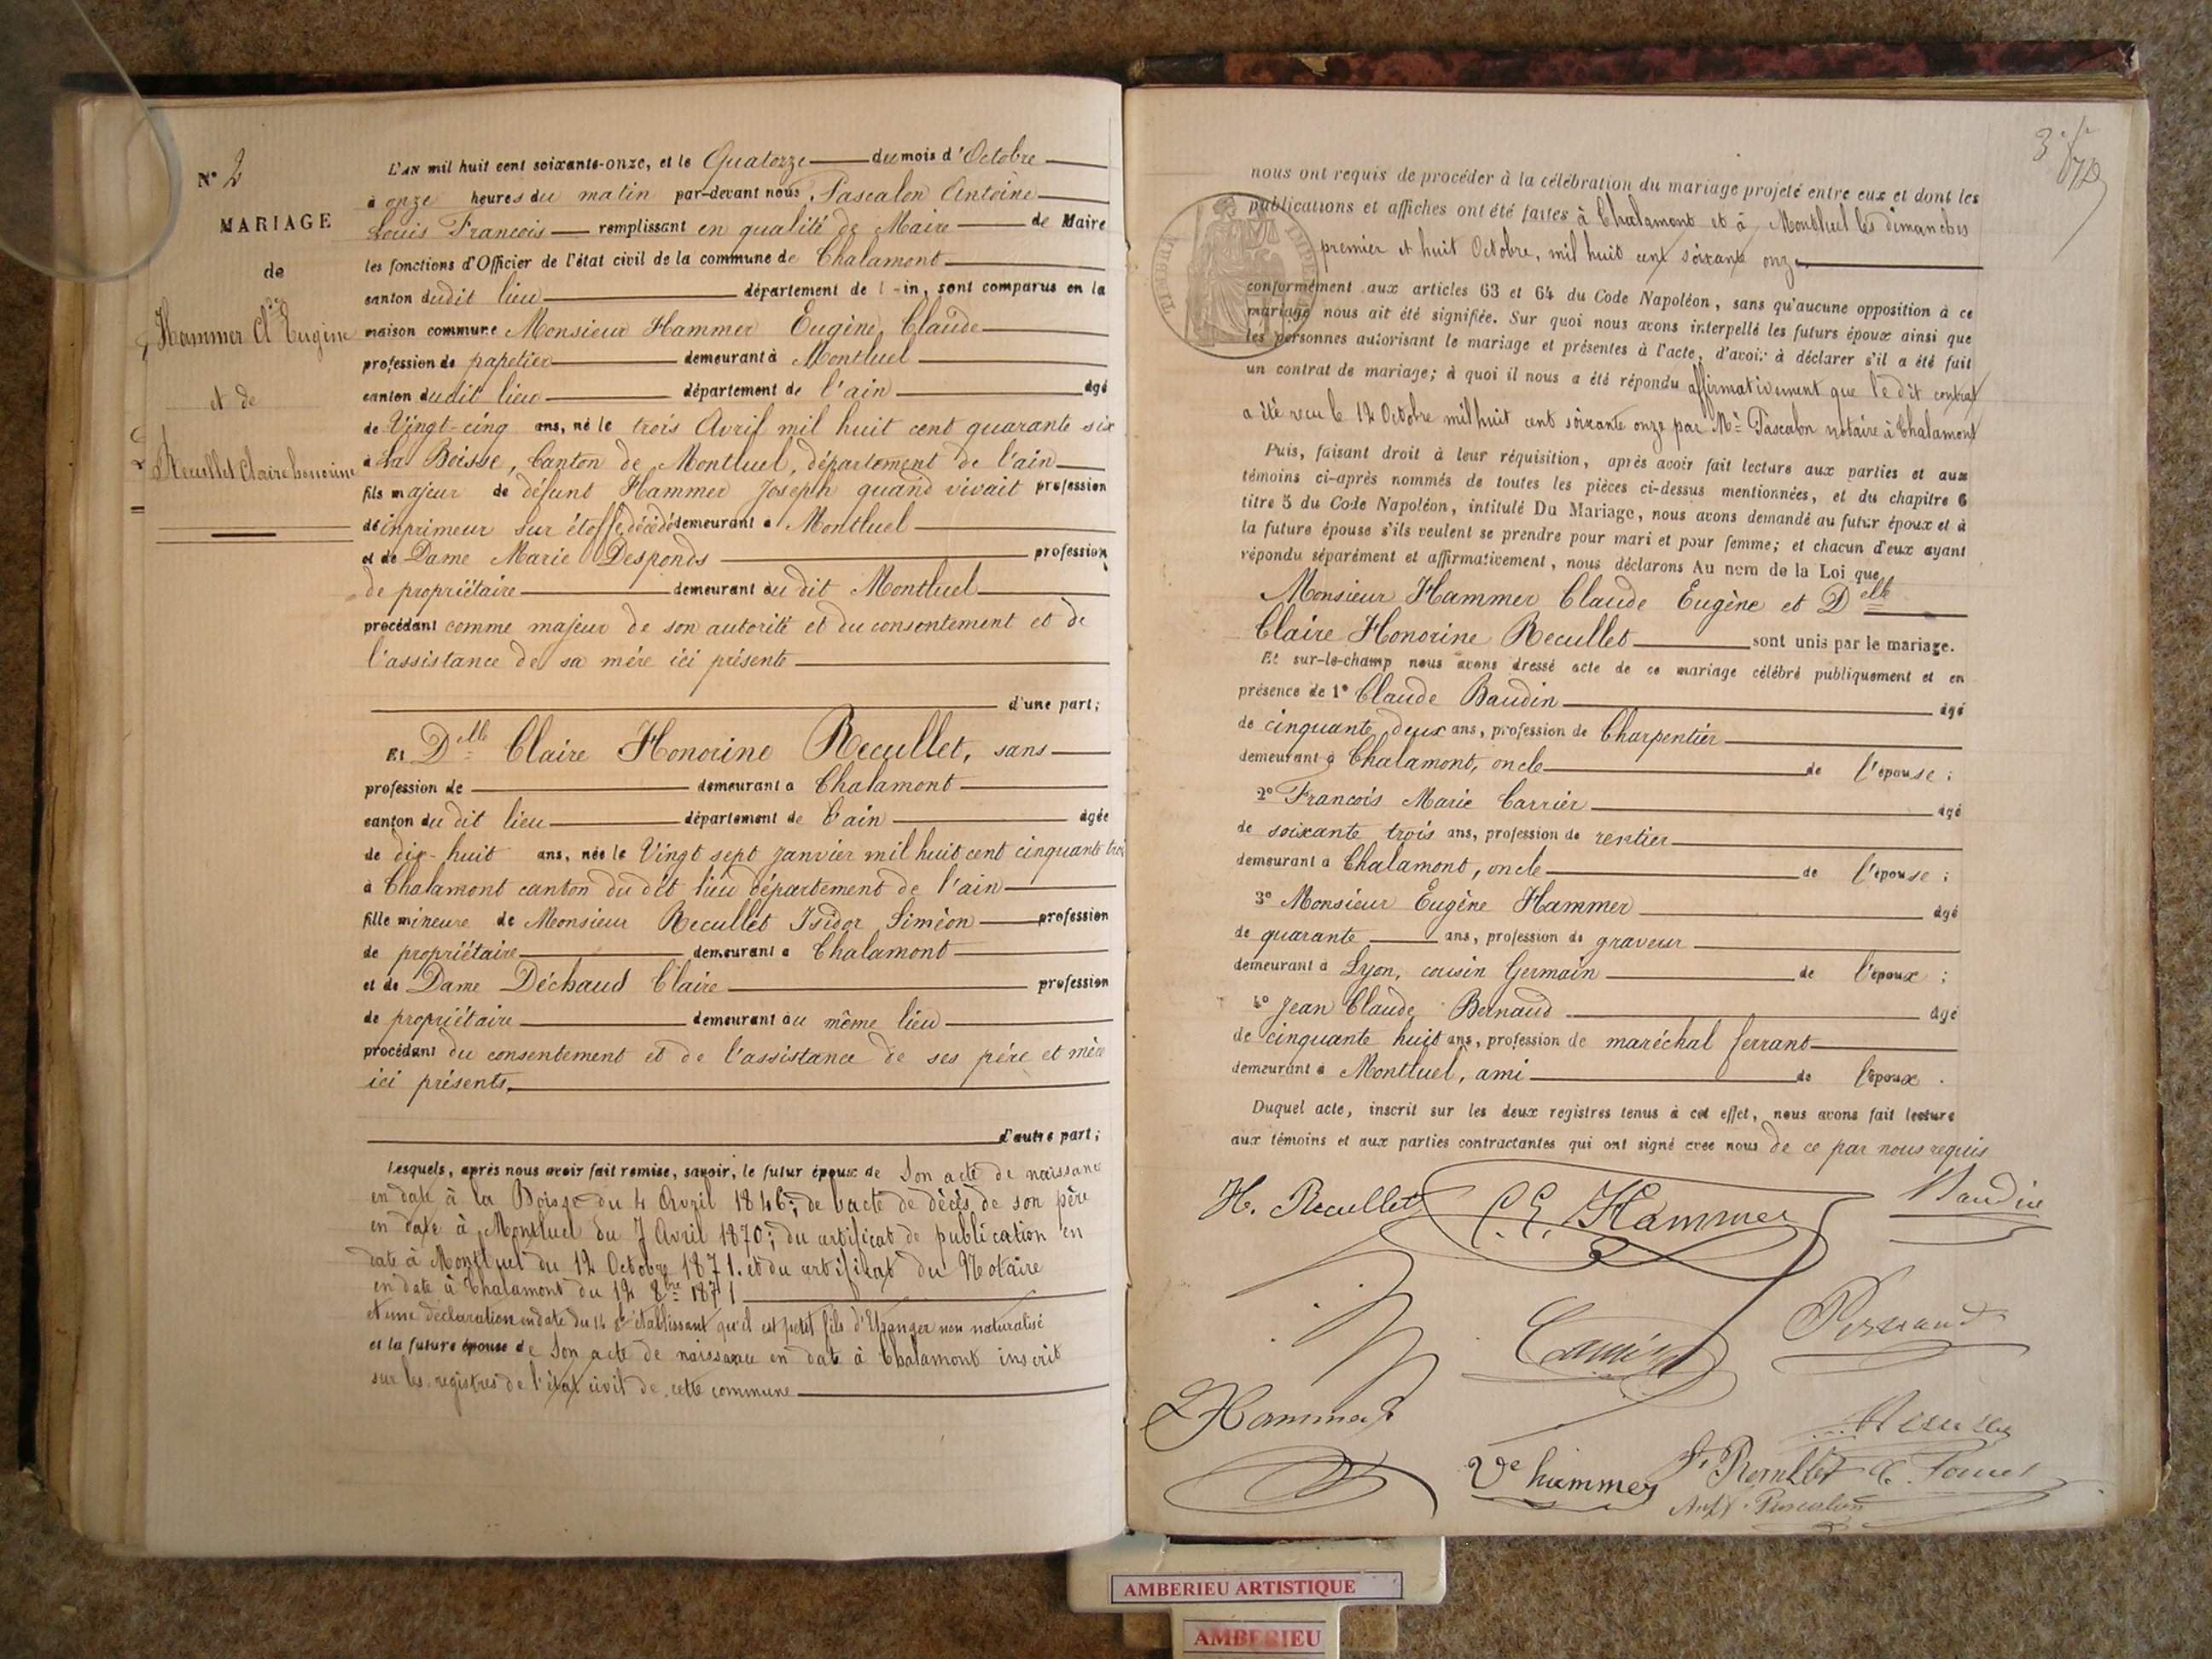 N° 2
MARIAGE
de
Hammer Cde Eugène
et de
Recullet Claire honorine
L'AN mil huit cent soixante-onze, et le Quatorze du mois d'Octobre
à onze heures du matin par-devant nous, Pascalon Antoine
Louis François remplissant en qualité de Maire de Maire
les fonctions d'Officier de l'état civil de la commune de Chalamont
canton dudit lieu département de l'Ain, sont comparus en la
maison commune Monsieur Hammer Eugène, Claude
profession de papetier demeurant à Montluel
canton dudit lieu département de l'ain âgé
de Vingt-cinq ans, né le trois Avril mil huit cent quarante six
à La Boisse, Canton de Montluel, département de l'ain
fils majeur de défunt Hammer Joseph quand vivait profession
de inprimeur sur étoffe, décédé demeurant à Montluel
et de Dame Marie Desponds profession
de propriétaire demeurant au dit Montluel
procédant comme majeur de son autorité et du consentement et de
l'assistance de sa mère ici présente
d'une part;
Et Delle Claire Honorine Recullet, sans
profession de demeurant à Chalamont
canton du dit lieu département de l'ain âgée
de dix-huit ans, née le Vingt sept janvier mil huit cent cinquante trois
à Chalamont canton du dit lieu département de l'ain
fille mineure de Monsieur Recullet Isidor Siméon profession
de propriétaire demeurant à Chalamont
et de Dame Déchaud Claire profession
de propriétaire demeurant au même lieu
procédant du consentement et de l'assistance de ses père et mère
ici présents,
d'autre part;
Lesquels, après nous avoir fait remise, savoir, le futur époux de Son acte de naissance
en date à la Boisse du 4 Avril 1846; de l'acte de décès de son père
en date à Montluel du 7 Avril 1870; du certificat de publication en
date à Montluel du 12 Octobre 1871. et du certificat du Notaire
en date à Chalamont du 12 8bre 1871
et une déclaration en date du 14 8bre établissant qu'il est petit fils d'Etranger non naturalisé
et la future épouse de Son acte de naissance en date à Chalamont inscrit
sur les registres de l'état civil de cette commune
nous ont requis de procéder à la célébration du mariage projeté entre eux et dont les
publications et affiches ont été faites à Chalamont et à Montluel les dimanches
premier et huit Octobre, mil huit cent soixante onze
conformément aux articles 63 et 64 du Code Napoléon, sans qu'aucune opposition à ce
mariage nous ait été signifiée. Sur quoi nous avons interpellé les futurs époux ainsi que
les personnes autorisant le mariage et présentes à l'acte, d'avoir à déclarer s'il a été fait
un contrat de mariage; à quoi il nous a été répondu affirmativement que le dit contrat
a été reçu le 12 Octobre mil huit cent soixante onze par Me Pascalon notaire à Chalamont
Puis, faisant droit à leur réquisition, après avoir fait lecture aux parties et aux
témoins ci-après nommés de toutes les pièces ci-dessus mentionnées, et du chapitre 6
titre 5 du Code Napoléon, intitulé Du Mariage, nous avons demandé au futur époux et à
la future épouse s'ils veulent se prendre pour mari et pour femme; et chacun d'eux ayant
répondu séparément et affirmativement, nous déclarons Au nom de la Loi que
Monsieur Hammer Claude Eugène et Delle
Claire Honorine Recullet sont unis par le mariage.
Et sur-le-champ nous avons dressé acte de ce mariage célébré publiquement et en
présence de 1° Claude Baudin âgé
de cinquante deux ans, profession de Charpentier
demeurant à Chalamont, oncle de l'épouse;
2° François Marie Carrier âgé
de soixante trois ans, profession de rentier
demeurant à Chalamont, oncle de l'épouse;
3° Monsieur Eugène Hammer âgé
de quarante ans, profession de graveur
demeurant à Lyon, cousin Germain de l'époux;
4° Jean Claude Bernaud âgé
de cinquante huit ans, profession de maréchal ferrant
demeurant à Montluel, ami de l'époux.
Duquel acte, inscrit sur les deux registres tenus à cet effet, nous avons fait lecture
aux témoins et aux parties contractantes qui ont signé avec nous de ce par nous requis
H. Recullet C. E. Hammer Baudin
Hammer
Ve hammer
AMBERIEU ARTISTIQUE
AMBERIEU